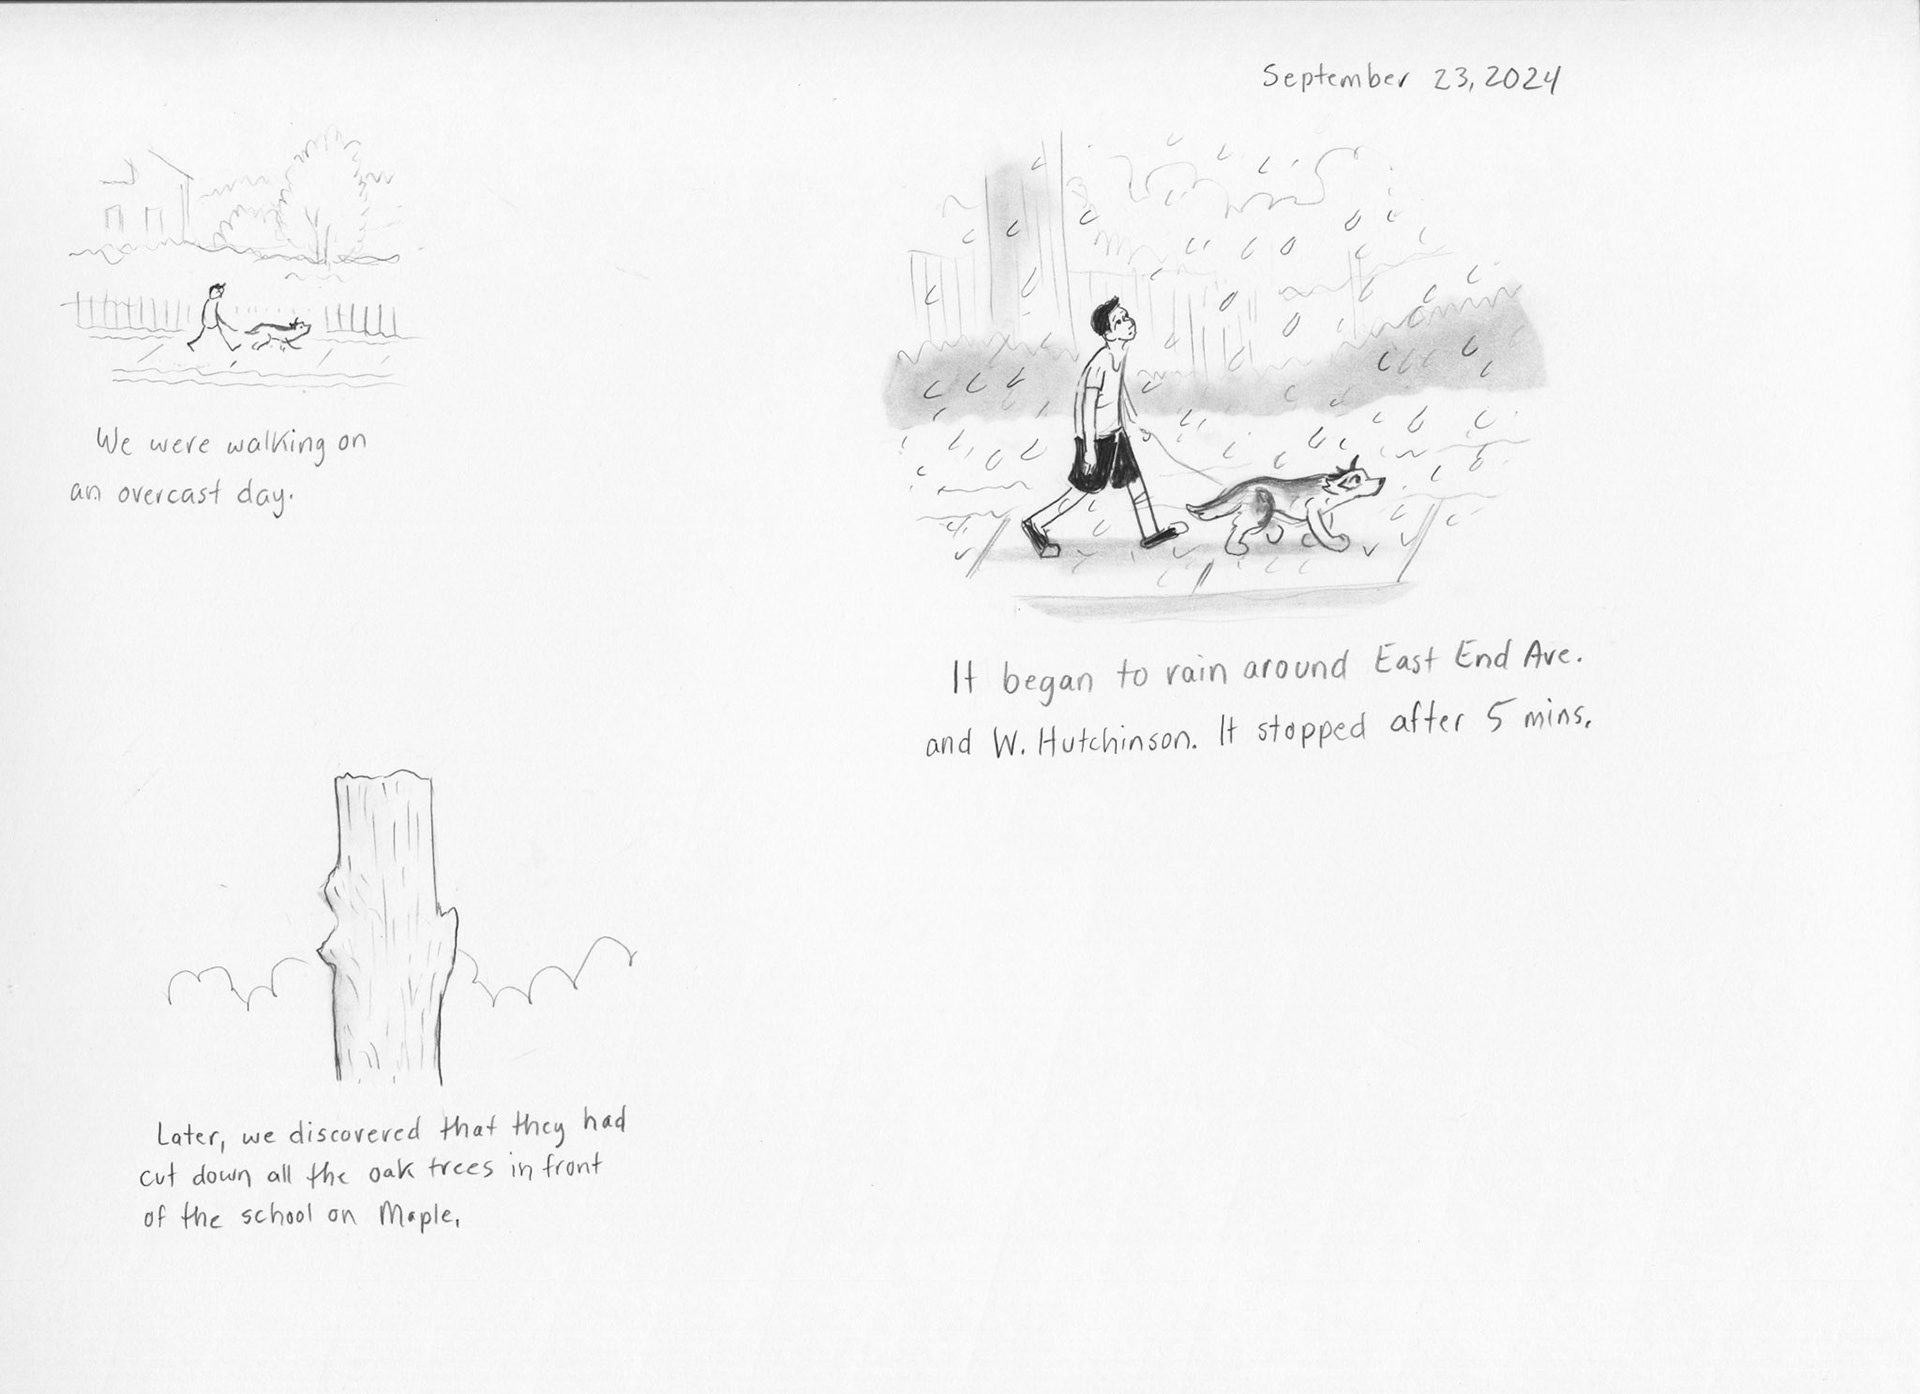 September 23, 2024
We were walking on
an overcast day.
It began to rain around East End Ave.
and W. Hutchinson. It stopped after 5 mins.
Later, we discovered that they had
cut down all the oak trees in front
of the school on Maple.